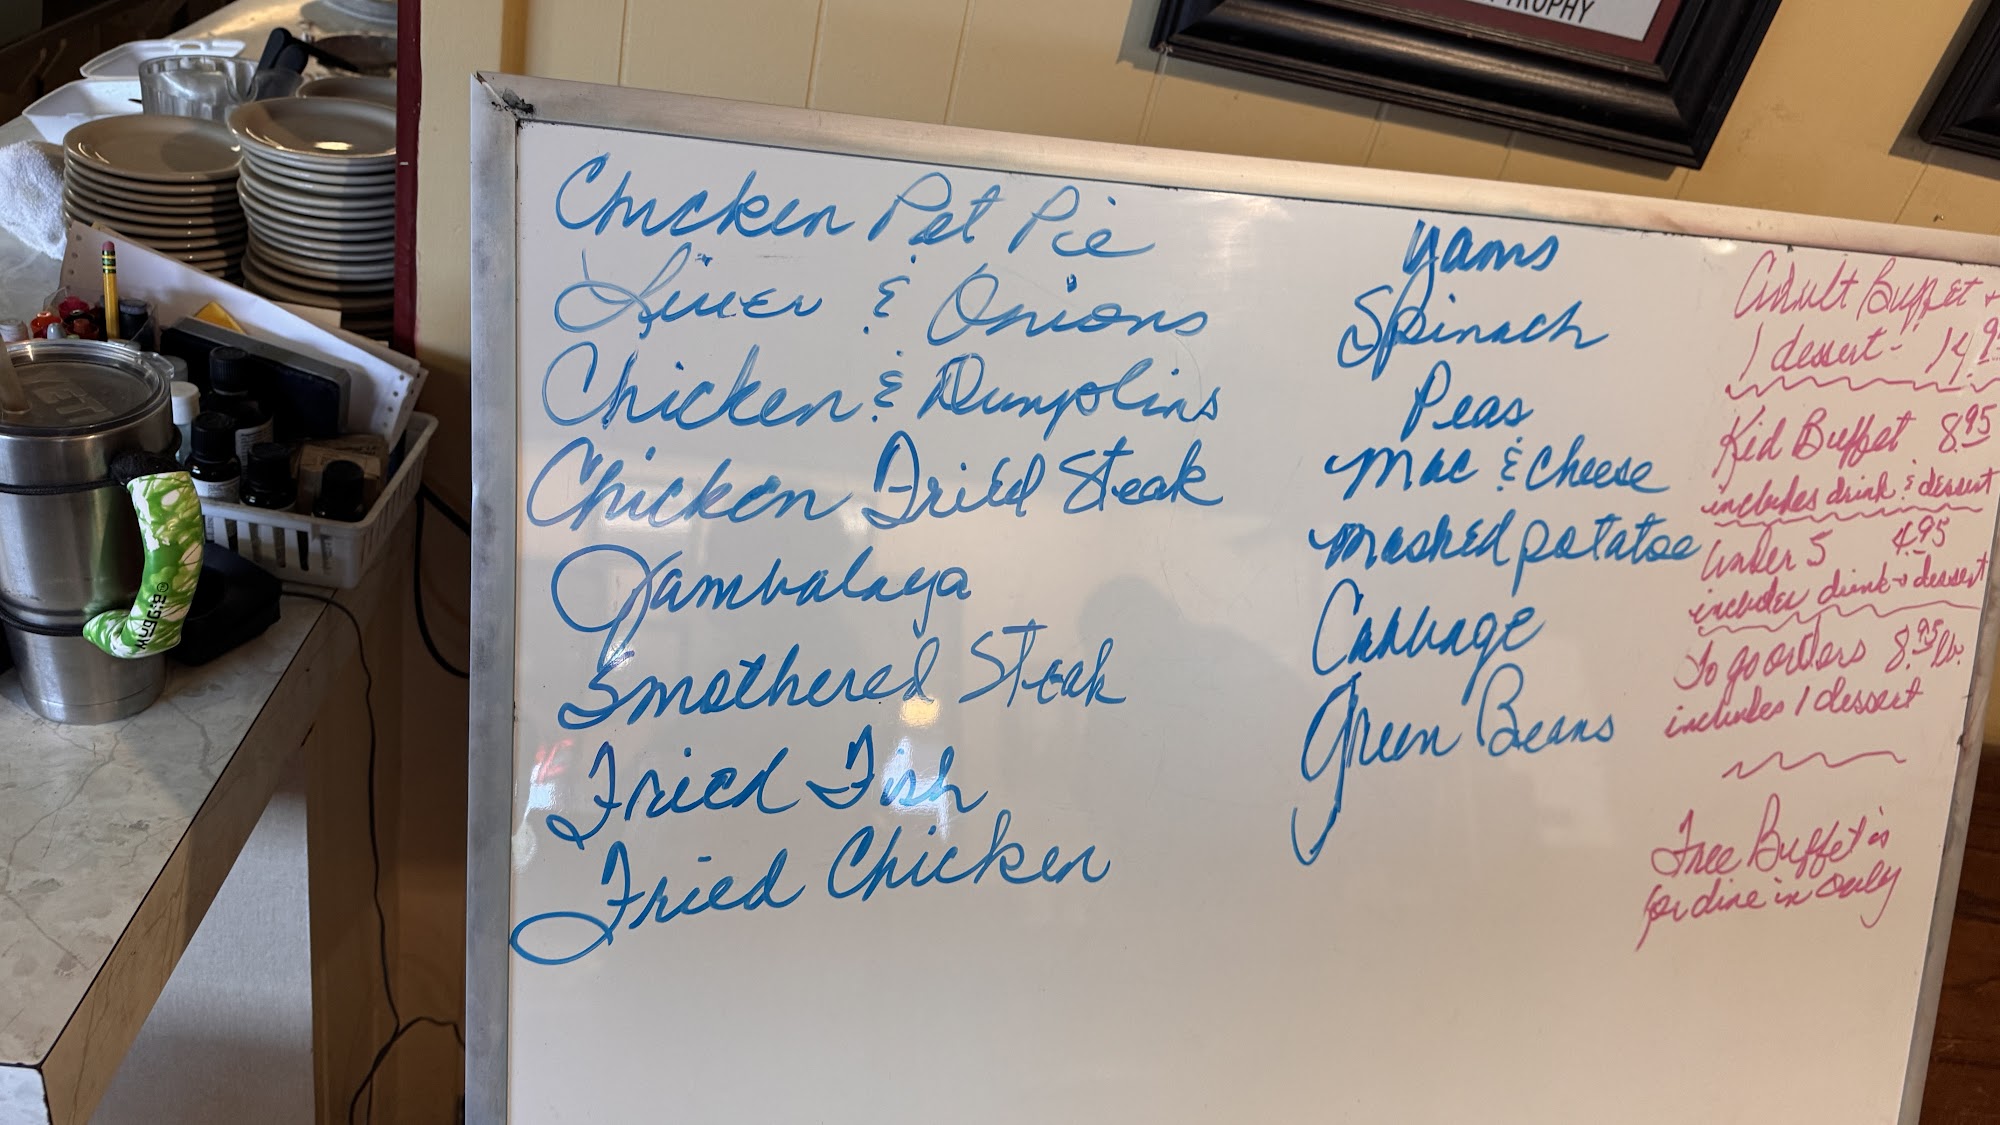 TROPHY
Chicken Pot Pie
Liver & Onions
Chicken & Dumplins
Chicken Fried Steak
Jambalaya
Smothered Steak
Fried Fish
Fried Chicken
Yams
Spinach
Peas
Mac & Cheese
Mashed potatoe
Cabbage
Green Beans
Adult Buffet +
1 dessert -
Kid Buffet 8.95
includes drink & dessert
Under 5 4.95
includes drink + dessert
To go orders 8.95 lb.
includes 1 dessert
Free Buffet is
for dine in only